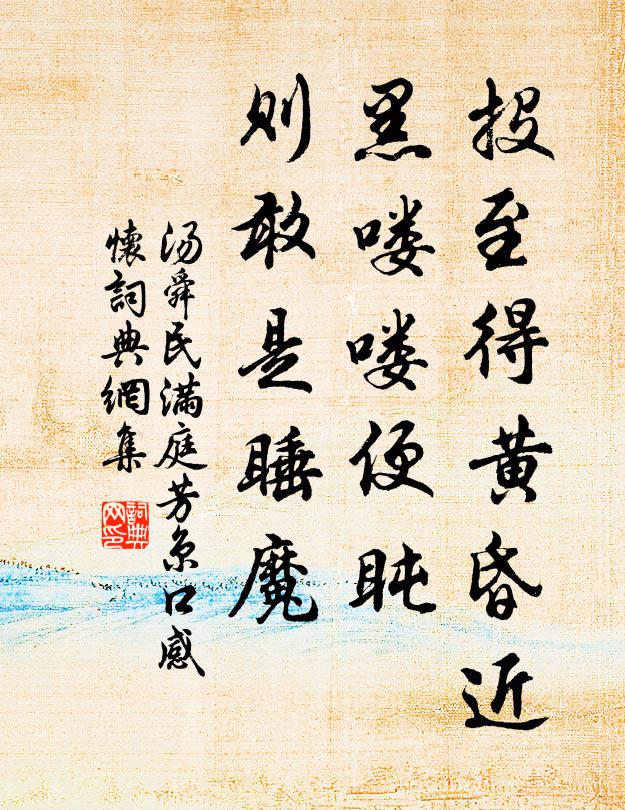 投至得黄昏近
黑喽喽便盹
则敢是睡魔
汤舜民满庭芳京口感
懷詞典網集
詞典
网印